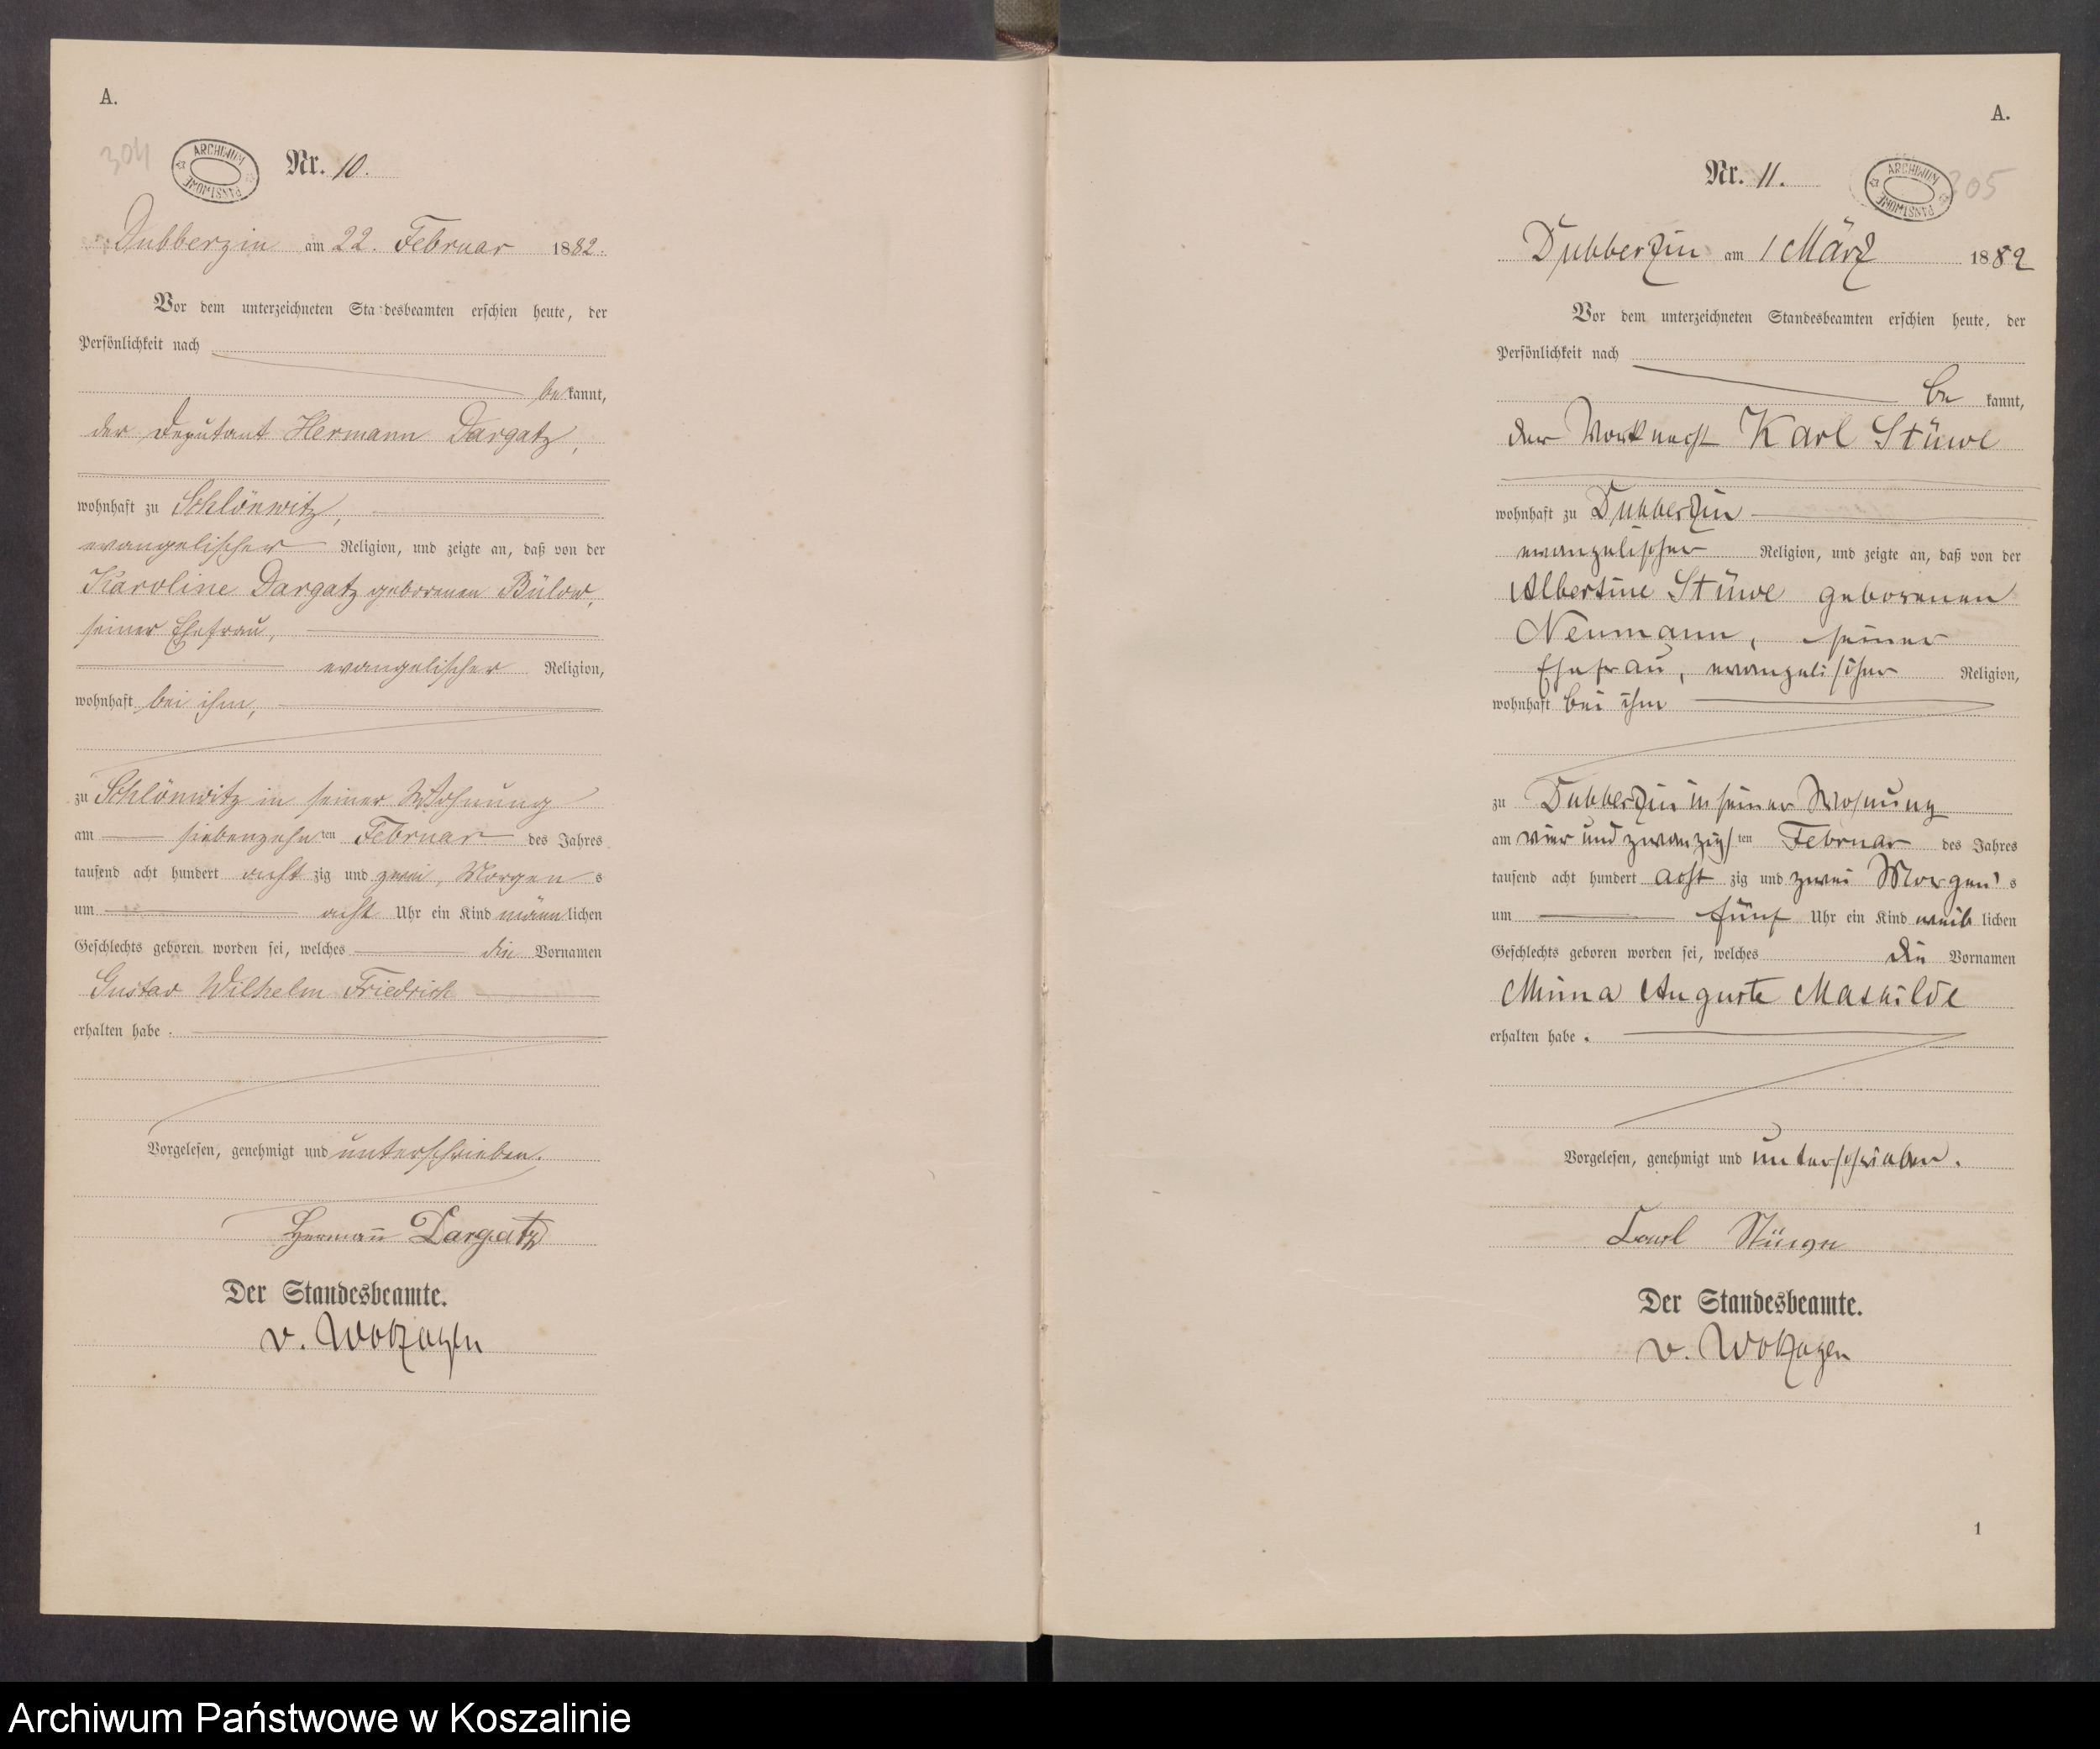 A.
304
ARCHIWUM PAŃSTWOWE
Nr. 10.
Dubberzin am 22. Februar 1882.
Vor dem unterzeichneten Standesbeamten erschien heute, der
Persönlichkeit nach
bekannt,
der Deputant Hermann Dargatz,
wohnhaft zu Schlönwitz,
evangelischer Religion, und zeigte an, daß von der
Karoline Dargatz geborenen Bülow,
seiner Ehefrau,
evangelischer Religion,
wohnhaft bei ihm,
zu Schlönwitz in seiner Wohnung
am siebenzehnten Februar des Jahres
tausend acht hundert achtzig und zwei, Morgens
um acht Uhr ein Kind männlichen
Geschlechts geboren worden sei, welches die Vornamen
Gustav Wilhelm Friedrich
erhalten habe.
Vorgelesen, genehmigt und unterschrieben.
Hermann Dargatz
Der Standesbeamte.
v. Wolzogen
A.
305
ARCHIWUM PAŃSTWOWE
Nr. 11.
Dubberzin am 1 März 1882
Vor dem unterzeichneten Standesbeamten erschien heute, der
Persönlichkeit nach
bekannt,
der Karl Stüwe
wohnhaft zu Dubberzin
evangelischer Religion, und zeigte an, daß von der
Albertine Stüwe geborenen
Neumann, seiner
Ehefrau, evangelischer Religion,
wohnhaft bei ihm
zu Dubberzin in seiner Wohnung
am vier und zwanzigsten Februar des Jahres
tausend acht hundert achtzig und zwei Morgen's
um fünf Uhr ein Kind weiblichen
Geschlechts geboren worden sei, welches die Vornamen
Minna Auguste Mathilde
erhalten habe.
Vorgelesen, genehmigt und unterschrieben.
Carl Stüwe
Der Standesbeamte.
v. Wolzogen
1
Archiwum Państwowe w Koszalinie